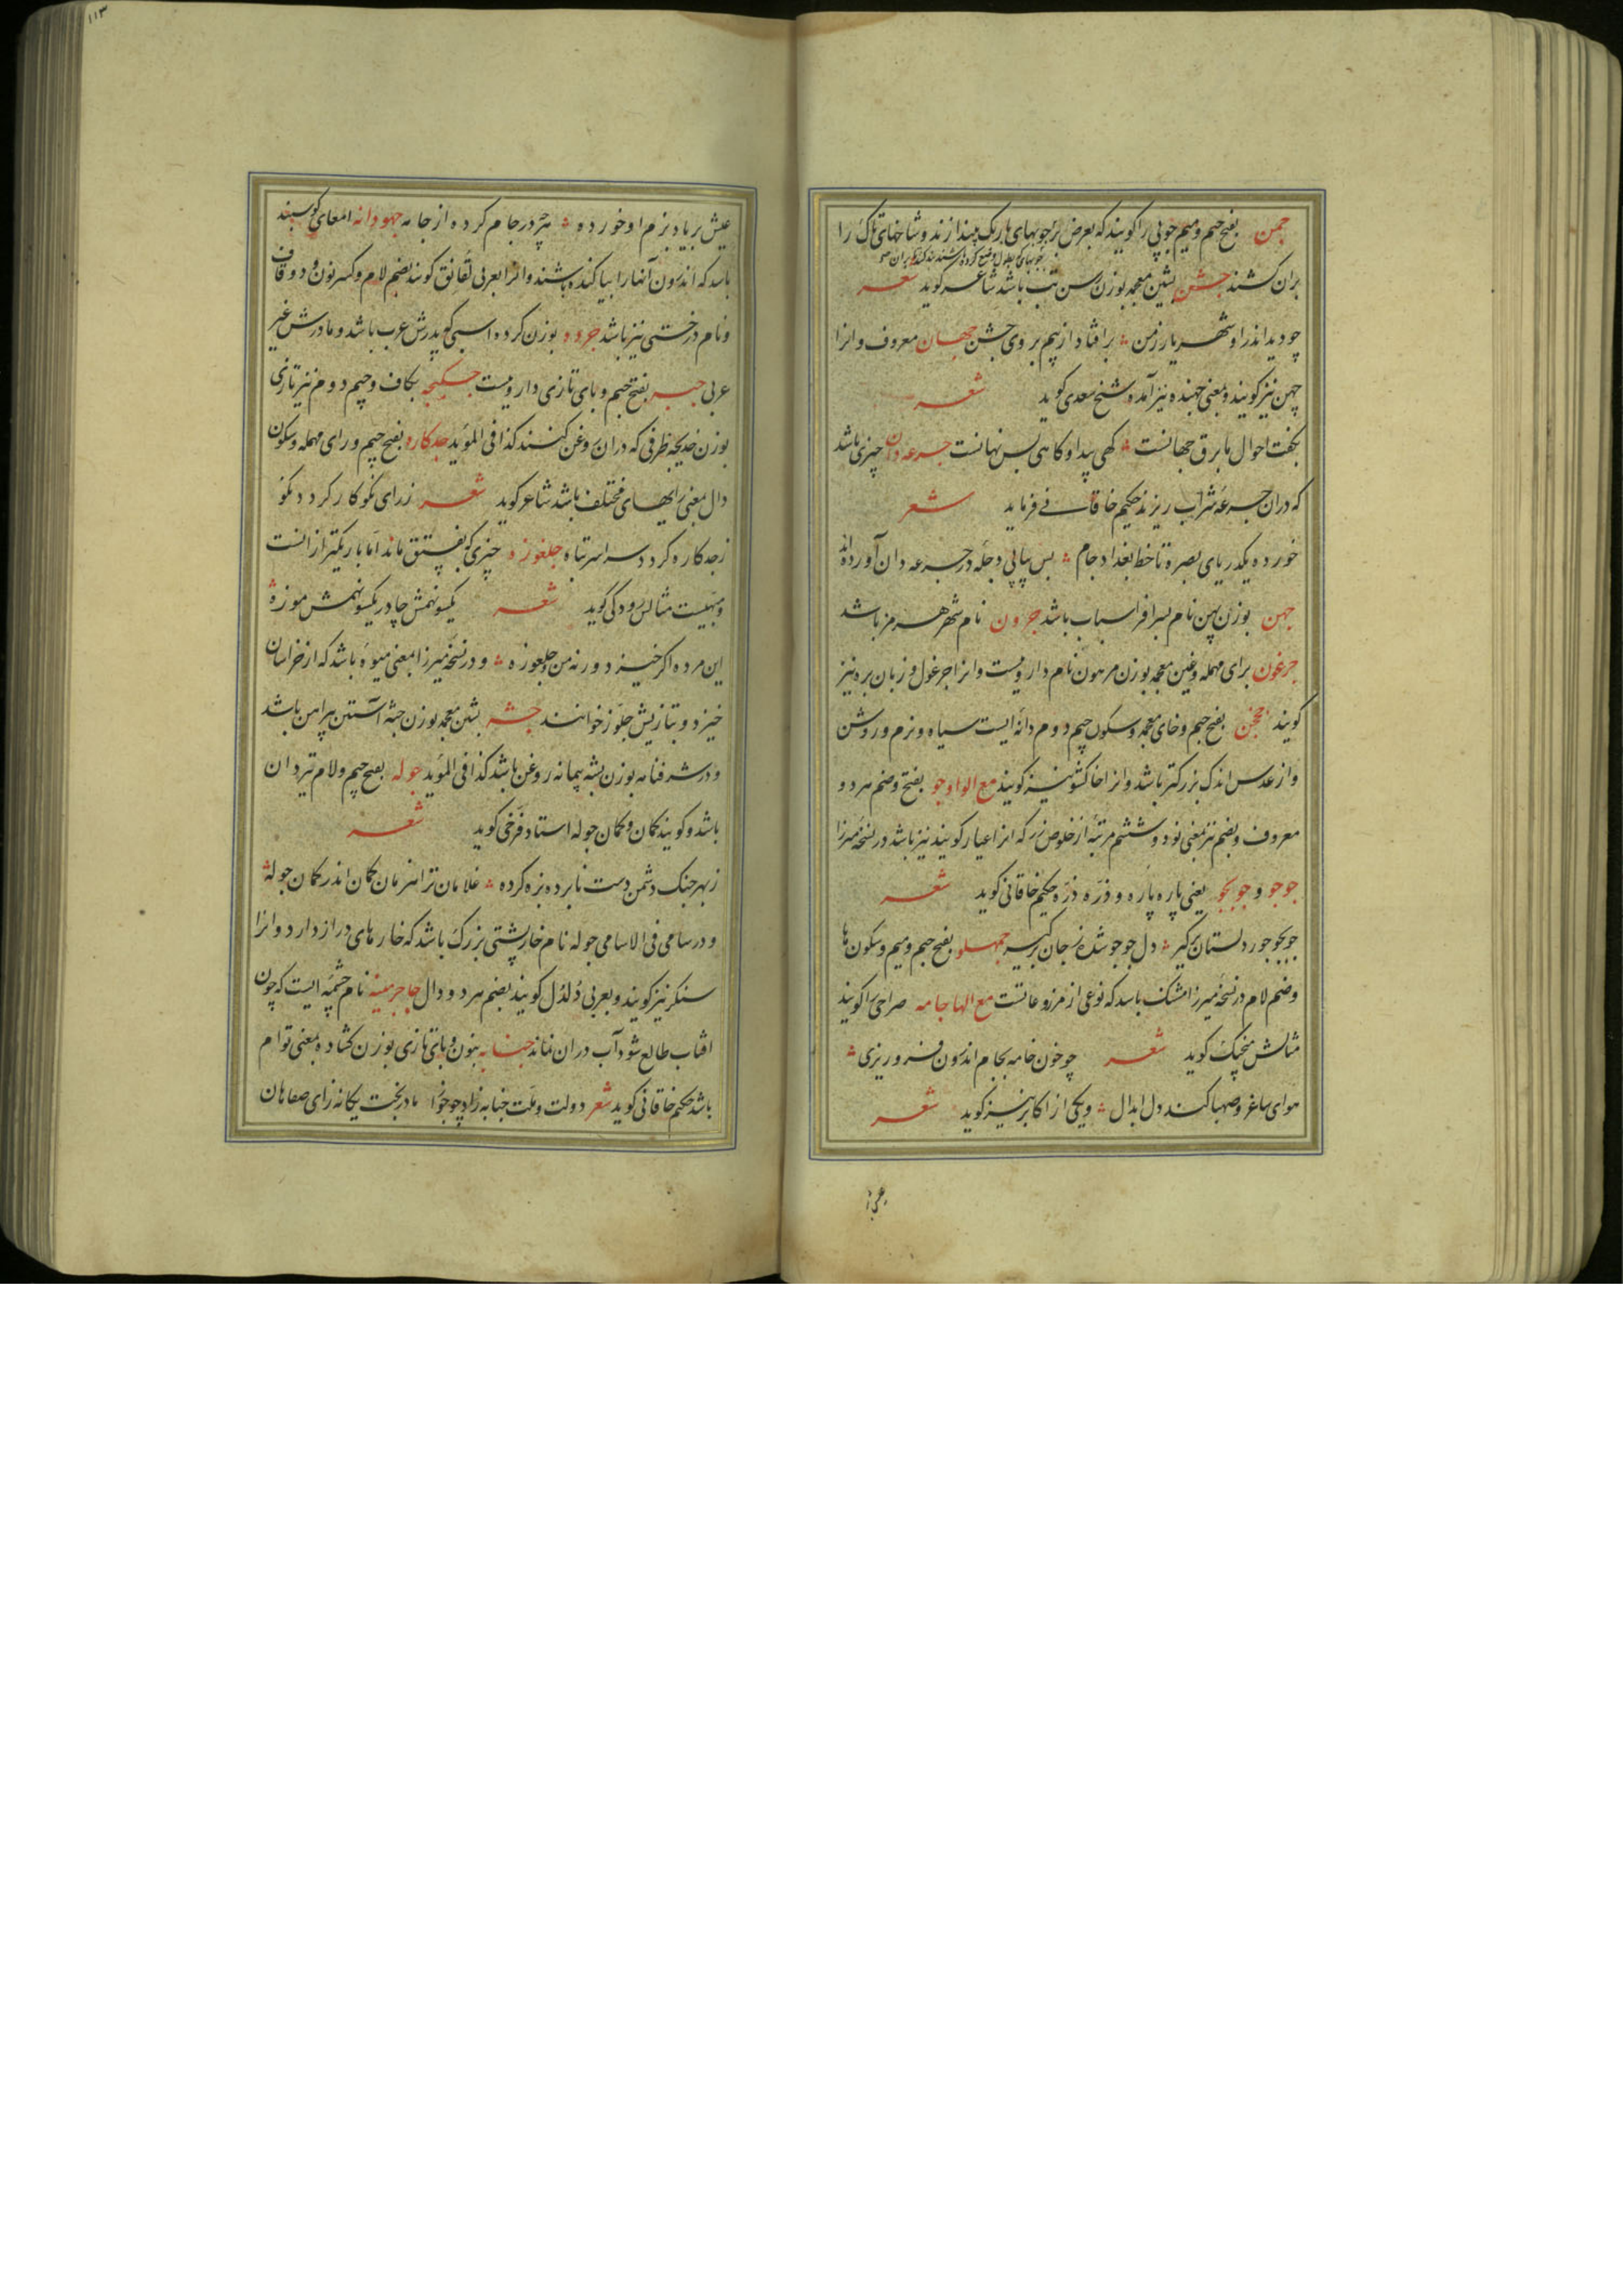 جمن بفتح جیم و میم چوبی را کویند که بعرض بر چوبهای باریک بیندازند و شاخهای تاک را
بران کشند جشن بشین معجمه بوزن رسن تب باشد شاعر کوید شعر
چو دید اندر او شهریار زمن بر افتاد از بیم بر وی جشن جهان معروف و انرا
جهن نیز کویند و بمعنی جهنده نیز آمده شیخ سعدی کوید شعر
بکفت احوال ما برق جهانست کهی پیدا و کاهی بس نهانست جرعه دان چیزی باشد
که دران جرعه شراب ریزند حکیم خاقانی فرماید شعر
خورده یکدریای بصره تا خط بغداد جام بس پیاپی دجله در جرعه دان آورده اند
جهن بوزن پهن نام پسر افراسیاب باشد جرون نام شهر هرمز باشد
جرغون برای مهمله و غین معجمه بوزن مرهون نام دارویست و انرا جرغول و زبان بره نیز
کویند جخجن بفتح جیم و خای معجمه و سکون جیم دوم دانه ایست سیاه و نرم و روشن
و از عدس اندک بزرکتر باشد و انرا خاکشو نیز کویند مع الواو جو بفتح و ضم هر دو
معروف و بضم نیز بمعنی نود و ششم مرتبه از خلوص زر که انرا عیار کویند نیز باشد در نسخه میرزا
جوجو و جوبجو یعنی پاره پاره و ذره ذره حکیم خاقانی کوید شعر
جوبجو جور دلستان برکیر دل جوجو شده ز جان برکیر جمهلو بفتح جیم و میم و سکون ها
و ضم لام در نسخه میرزا مشک باشد که نوعی از مرزو عانست مع الها جامه صراحی را کویند
مثالش منجیک کوید شعر چو خون خامه بجام اندرون فرو ریزی
هوای ساغر و صهبا کند دل ابدال و یکی از اکابر نیز کوید شعر
۱۱۳
عیش بر یاد بزم او خورده هرچه در جام کرده از جامه جهودانه امعای کوسبند
باشد که اندرون آنها را بیاکنده باشند و انرا بعربی لقانق کویند بضم لام و کسر نون و دو قاف
و نام درختی نیز باشد جرده بوزن کرده اسبی که پدرش عرب باشد و مادرش غیر
عربی جبه بفتح جیم و بای تازی دارویست جکیجه بکاف و جیم دوم نیز تازی
بوزن خدیجه ظرفی که دران روغن کنند کذا فی المؤید جدکاره بفتح جیم و رای مهمله و سکون
دال بمعنی رایهای مختلف باشد شاعر کوید شعر ز رای نکو کار کردد نکو
ز جدکاره کردد سراسر تباه جلغوزه چیزی که بفستق ماند اما باریکتر ازانست
و مهیبست مثالش رودکی کوید شعر یکسو نهمش چادر یکسو نهمش موزه
این مرده اکر خیزد ورنه من و جلغوزه و در نسخه میرزا بمعنی میوه باشد که از خراسان
خیزد و بتازیش جلوز خوانند جشه بشین معجمه بوزن جثه آستین پیراهن باشد
و در شرفنامه بوزن پشه پیمانه روغن باشد کذا فی المؤید جوله بفتح جیم و لام تیردان
باشد و کویند کمان و کمان جوله استاد فرخی کوید شعر
ز بهر جنک دشمن دست نابرده بزه کرده غلامان ترا هزمان کمان اندر کمان جوله
و در سامی فی الاسامی جوله نام خارپشتی بزرک باشد که خارهای دراز دارد و انرا
سنکر نیز کویند و بعربی دلدل کویند بضم هر دو دال جاجرمینه نام چشمه ایست که چون
افتاب طالع شود آب دران نماند جنابه بنون و بای تازی بوزن کشاده بمعنی توام
باشد حکیم خاقانی کوید شعر دولت و ملت جنابه زاد چو جوزا مادر بخت یکانه زای صفاهان